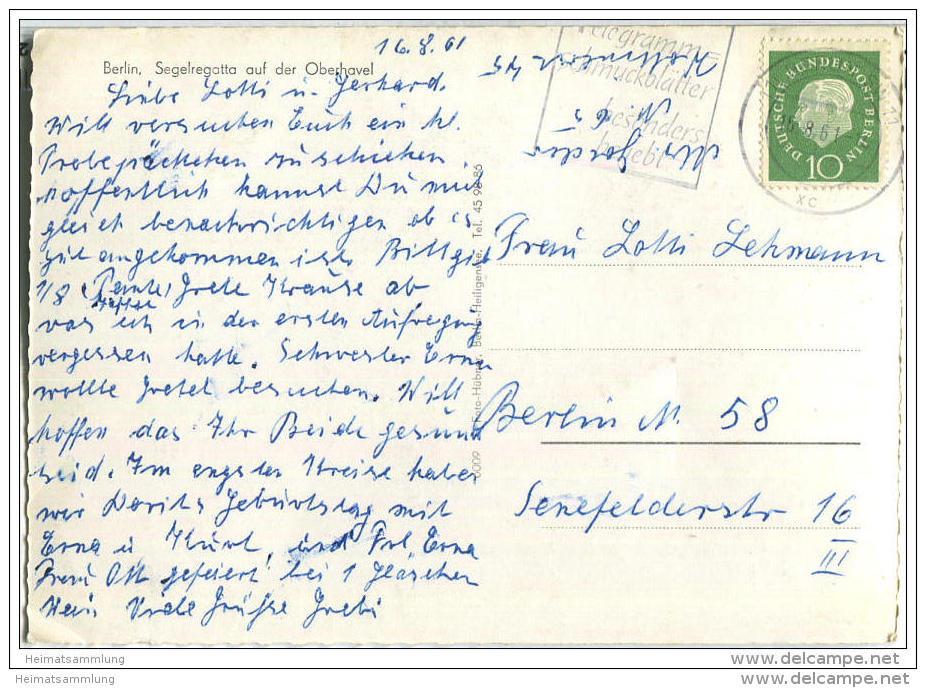 16.8.61
Berlin, Segelregatta auf der Oberhavel
Liebe Lotti u. Gerhard.
Will versuchen Euch ein kl.
Probepäckchen zu schicken.
Hoffentlich kannst Du mir
gleich benachrichtigen ob es
gut angekommen ist. Bitte gib
1/8 (Tante) Grete Krause ab
was ich in der ersten Aufregung
vergessen hatte. Schwester Erna
wollte Gretel besuchen. Will
hoffen das Ihr Beide gesund
seid. Im engsten Kreise haben
wir Dorits Geburtstag mit
Erna u. Kurt, und Frl. Erna
Frau Ott gefeiert bei 1 Glaschen
Wein Viele Grüsse Greti
Foto-Hübner, Berlin-Heiligensee, Tel. 45 98 86
0009
Telegramme
Schmuckblätter
besonders
beliebt
DEUTSCHE BUNDESPOST BERLIN
10
8.61
xc
Frau Lotti Lehmann
Berlin N. 58
Senefelderstr 16
III
Heimatsammlung
Heimatsammlung
www.delcampe.net
www.delcampe.net